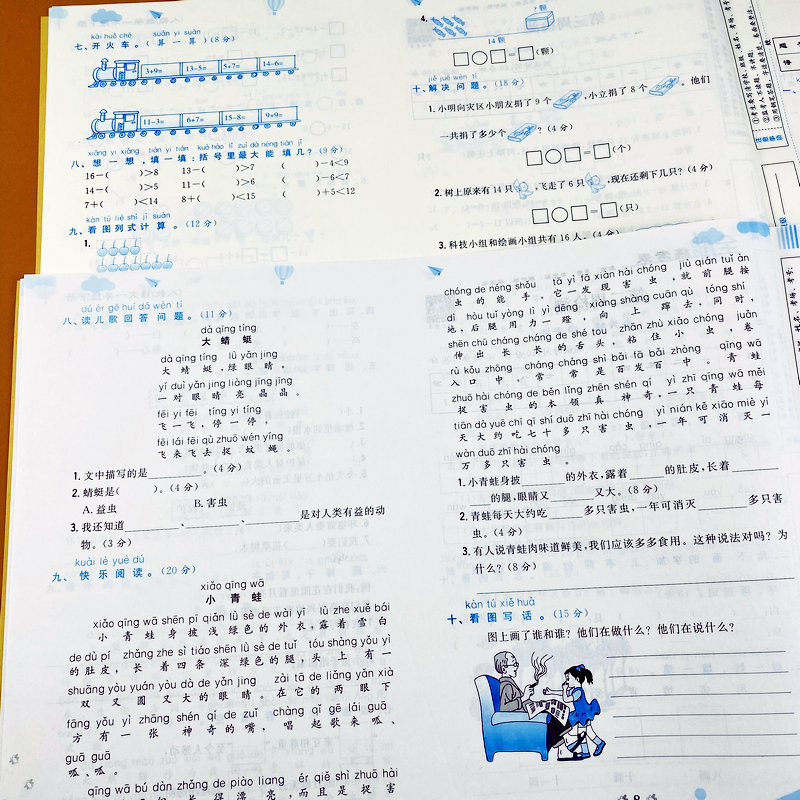 kāi huǒ chē suàn yi suàn
七、开火车。(算一算)(8分)
3+9= 13-5= 5+7= 14-6=
11-3= 6+7= 15-8= 9+9=
xiǎng yi xiǎng tián yi tián kuò hào lǐ zuì dà néng tián jǐ
八、想一想,填一填:括号里最大能填几?(9分)
16-( )>8 13-( )>7 ( )-4<9
14-( )>5 11-( )>6 ( )-6<7
7+( )<14 8+( )<15 ( )+5<12
kàn tú liè shì jì suàn
九、看图列式计算。(12分)
1.
4.
?颗
□○□=□(颗)
jiě jué wèn tí
十、解决问题。(18分)
1.小明向灾区小朋友捐了9个,小立捐了8个。他们
一共捐了多少个?(4分)
□○□=□(个)
2.树上原来有14只,飞走了6只,现在还剩下几只?(4分)
□○□=□(只)
3.科技小组和绘画小组共有16人。(4分)
dú ér gē huí dá wèn tí
八、读儿歌回答问题。(11分)
dà qīng tíng
大蜻蜓
dà qīng tíng lǜ yǎn jing
大蜻蜓,绿眼睛,
yí duì yǎn jing liàng jīng jīng
一对眼睛亮晶晶。
fēi yi fēi tíng yi tíng
飞一飞,停一停,
fēi lái fēi qù zhuō wén yíng
飞来飞去捉蚊蝇。
1.文中描写的是________。(4分)
2.蜻蜓是( )。(4分)
A.益虫 B.害虫
3.我还知道________、________、________是对人类有益的动
物。(3分)
kuài lè yuè dú
九、快乐阅读。(20分)
xiǎo qīng wā
小青蛙
xiǎo qīng wā shēn pī qiǎn lǜ sè de wài yī lù zhe xuě bái
小青蛙身披浅绿色的外衣,露着雪白
de dù pí zhǎng zhe sì tiáo shēn lǜ sè de tuǐ tóu shàng yǒu yì
的肚皮,长着四条深绿色的腿,头上有一
shuāng yòu yuán yòu dà de yǎn jing zài tā de liǎng yǎn xià
双又圆又大的眼睛。在它的两眼下
fāng yǒu yì zhāng shén qí de zuǐ chàng qǐ gē lái guā
方有一张神奇的嘴,唱起歌来呱、
guā guā
呱、呱。
qīng wā bú dàn zhǎng de piào liang ér qiě shì zhuō hài
青蛙不但长得漂亮,而且是捉害
chóng de néng shǒu tā yì fā xiàn hài chóng jiù qián tuǐ àn
虫的能手。它一发现害虫,就前腿按
dì hòu tuǐ yòng lì yì dēng xiàng shàng cuān qù tóng shí
地,后腿用力一蹬,向上蹿去,同时,
shēn chū cháng cháng de shé tou zhān zhù xiǎo chóng juǎn
伸出长长的舌头,粘住小虫,卷
rù kǒu zhōng cháng cháng shì bǎi fā bǎi zhòng qīng wā
入口中,常常是百发百中。青蛙
zhuō hài chóng de běn lǐng zhēn shén qí yì zhī qīng wā měi
捉害虫的本领真神奇,一只青蛙每
tiān dà yuē chī qī shí duō zhī hài chóng yì nián kě xiāo miè yí
天大约吃七十多只害虫,一年可消灭一
wàn duō zhī hài chóng
万多只害虫。
1.小青蛙身披________的外衣,露着________的肚皮,长着________
________的腿,眼睛又________又大。(8分)
2.青蛙每天大约吃________多只害虫,一年可消灭________多只害
虫。(4分)
3.有人说青蛙肉味道鲜美,我们应该多多食用。这种说法对吗?为
什么?(8分)
kàn tú xiě huà
十、看图写话。(15分)
图上画了谁和谁?他们在做什么?他们在说什么?